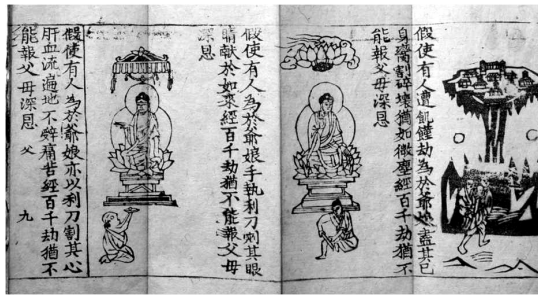 假使有人遭飢饉劫為於爺娘盡其己
身臠割碎壞猶如微塵經百千劫猶不
能報父母深恩
假使有人為於爺娘手執利刀剜其眼
睛獻於如來經百千劫猶不能報父母
深恩
假使有人為於爺娘亦以利刀割其心
肝血流遍地不辞痛苦經百千劫猶不
能報父母深恩 父 九